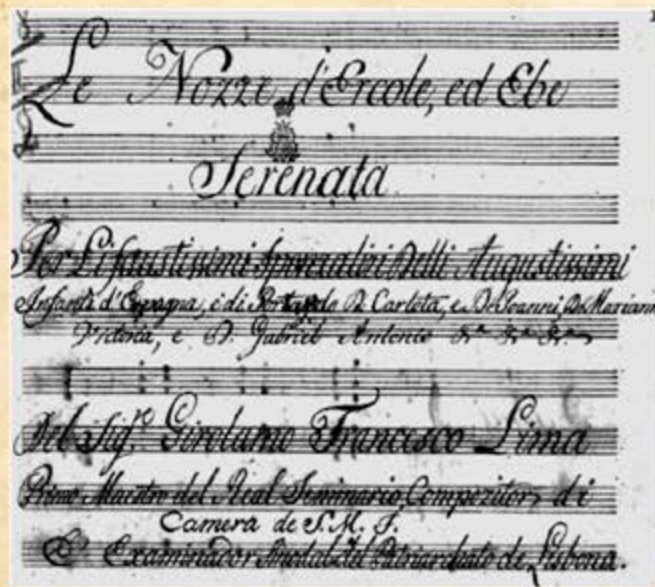 Le Nozze d'Ercole, ed Ebe
Serenata
Per Li faustissimi sponzalizi Delli Augustissimi
Infanti d'Espagna, e di Portogallo D. Carlota, e D. Joanni, D. Mariana
Victoria, e D. Gabriel Antonio &.ª &.ª &.ª
Del Sig.re Girolamo Francisco Lima
Primo Maestro del Real Seminario, Compozitor di
Camera de S. M. F.
E Examinador Sinodal del Patriarchato de Lisbona.